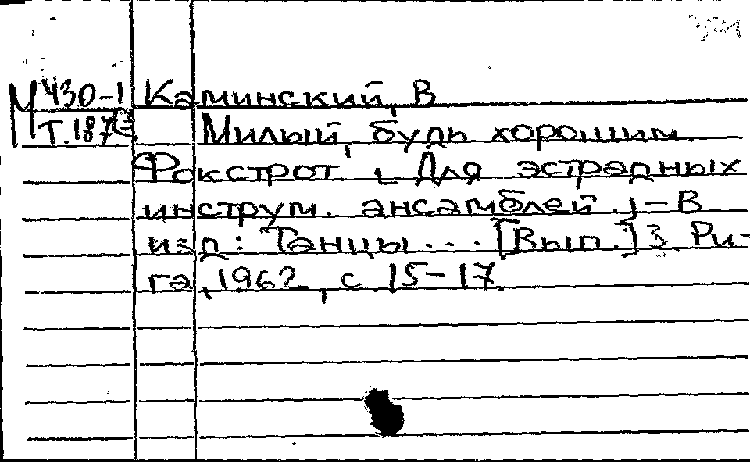 М 430-1 Каминский, В
Т.187
Милый, будь хорошим.
Фокстрот. [Для эстрадных
инструм. ансамблей.] – В
изд: Танцы... [Вып.] 3. Ри-
га, 1962, с 15-17.